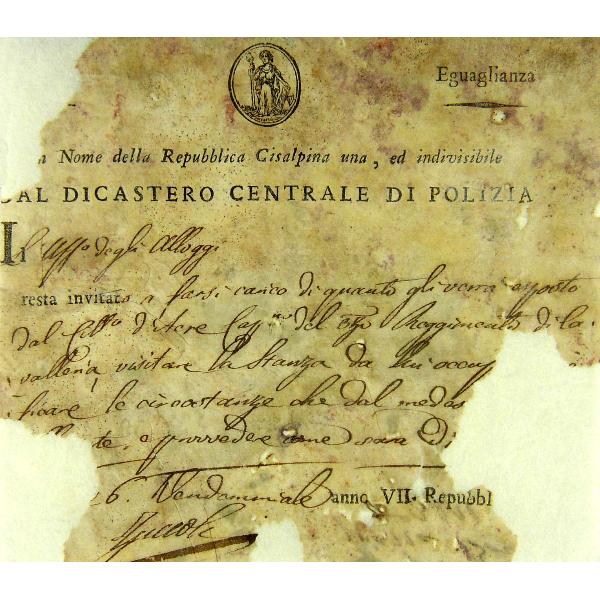 Eguaglianza
n Nome della Repubblica Cisalpina una, ed indivisibile
DAL DICASTERO CENTRALE DI POLIZIA
Il Uffº degli Alloggi
resta invitato a farsi carico di quanto gli verrà esposto
dal del Reggimento di Ca
valleria, visitare la Stanza da lui occup
ficare le circostanze che dal medes
te, e provvedere come sarà Di
6. Vendemmiale anno VII. Repubbl